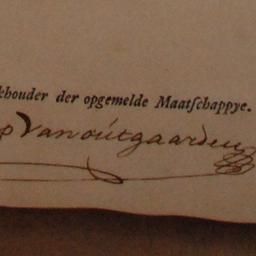 khouder der opgemelde Maatſchappye.
p Vanoutgaarden